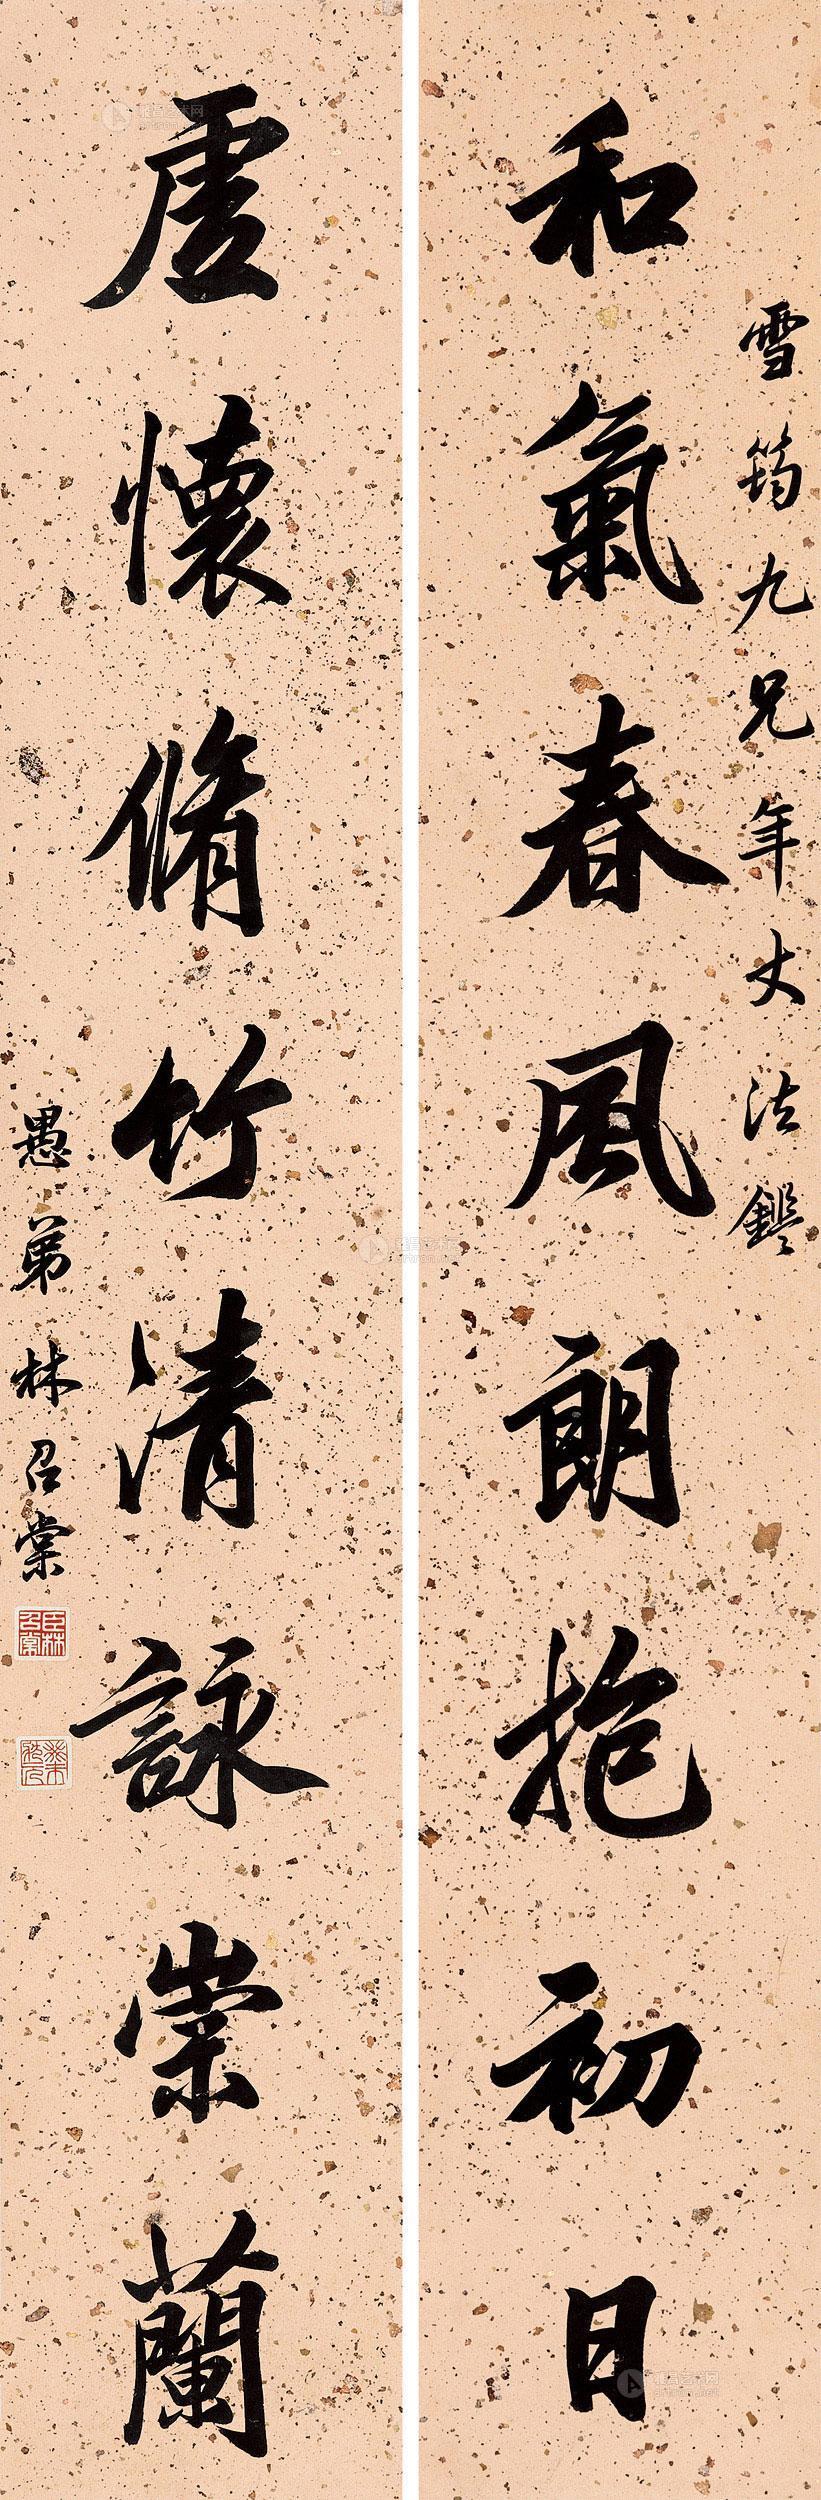 雪筠九兄年丈法鑑
和氣春風朗抱初日
虛懷脩竹清詠崇蘭
愚弟林召棠
臣林召棠